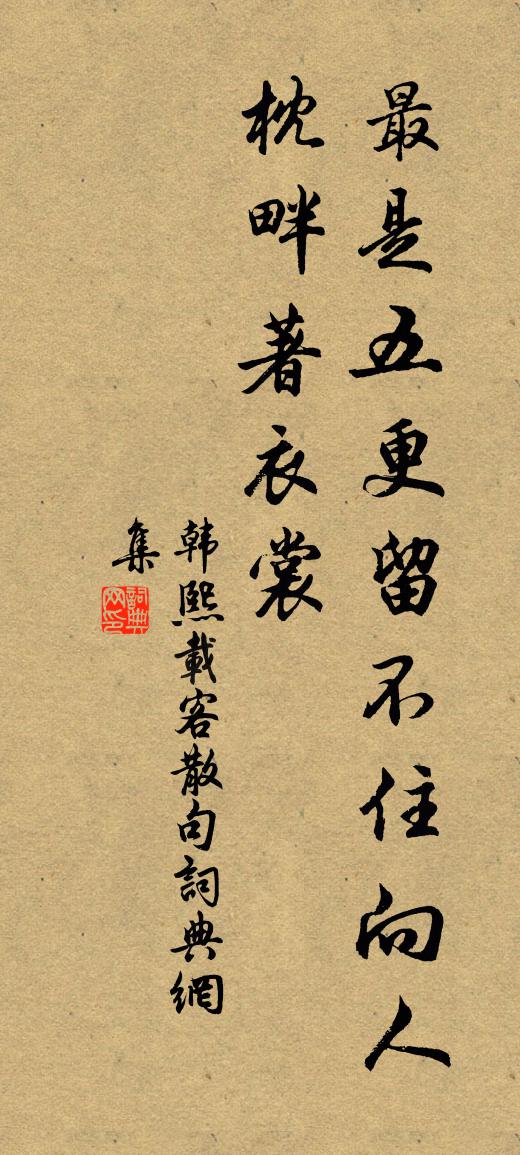 最是五更留不住向人
枕畔著衣裳
韩熙載客散句詞典網
集
詞典
网印